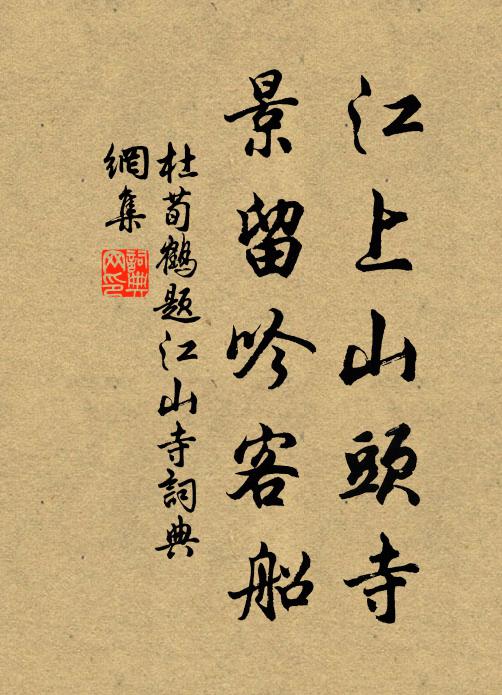 江上山頭寺
景留吟客船
杜荀鶴題江山寺詞典
網集
詞典
网印